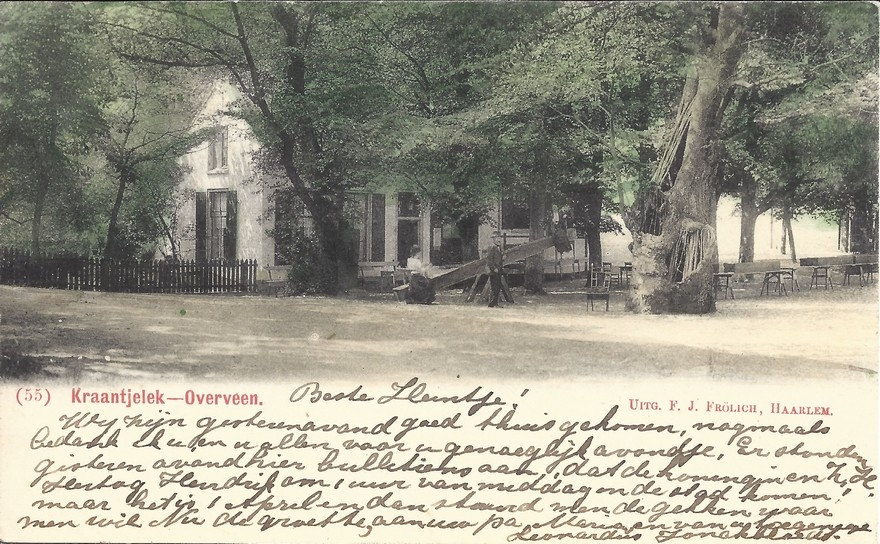 (55) Kraantjelek—Overveen.
Beste Heintje!
UITG. F. J. FRÖLICH, HAARLEM.
Wij zijn gisterenavond goed thuis gekomen, nogmaals
bedank ik u, en u allen voor u genoeglijk avondje, Er stonden
gisteren avond hier bulletiens aan, dat de koningin en Z. H.
Hertog Hendrik om 1 uur van middag in de stad komen!
maar het is 1 April en dan stuurd men de gekken waar
men wil. Nu de groette, aan uw pa, Maria en van u toegenege
Leonardus